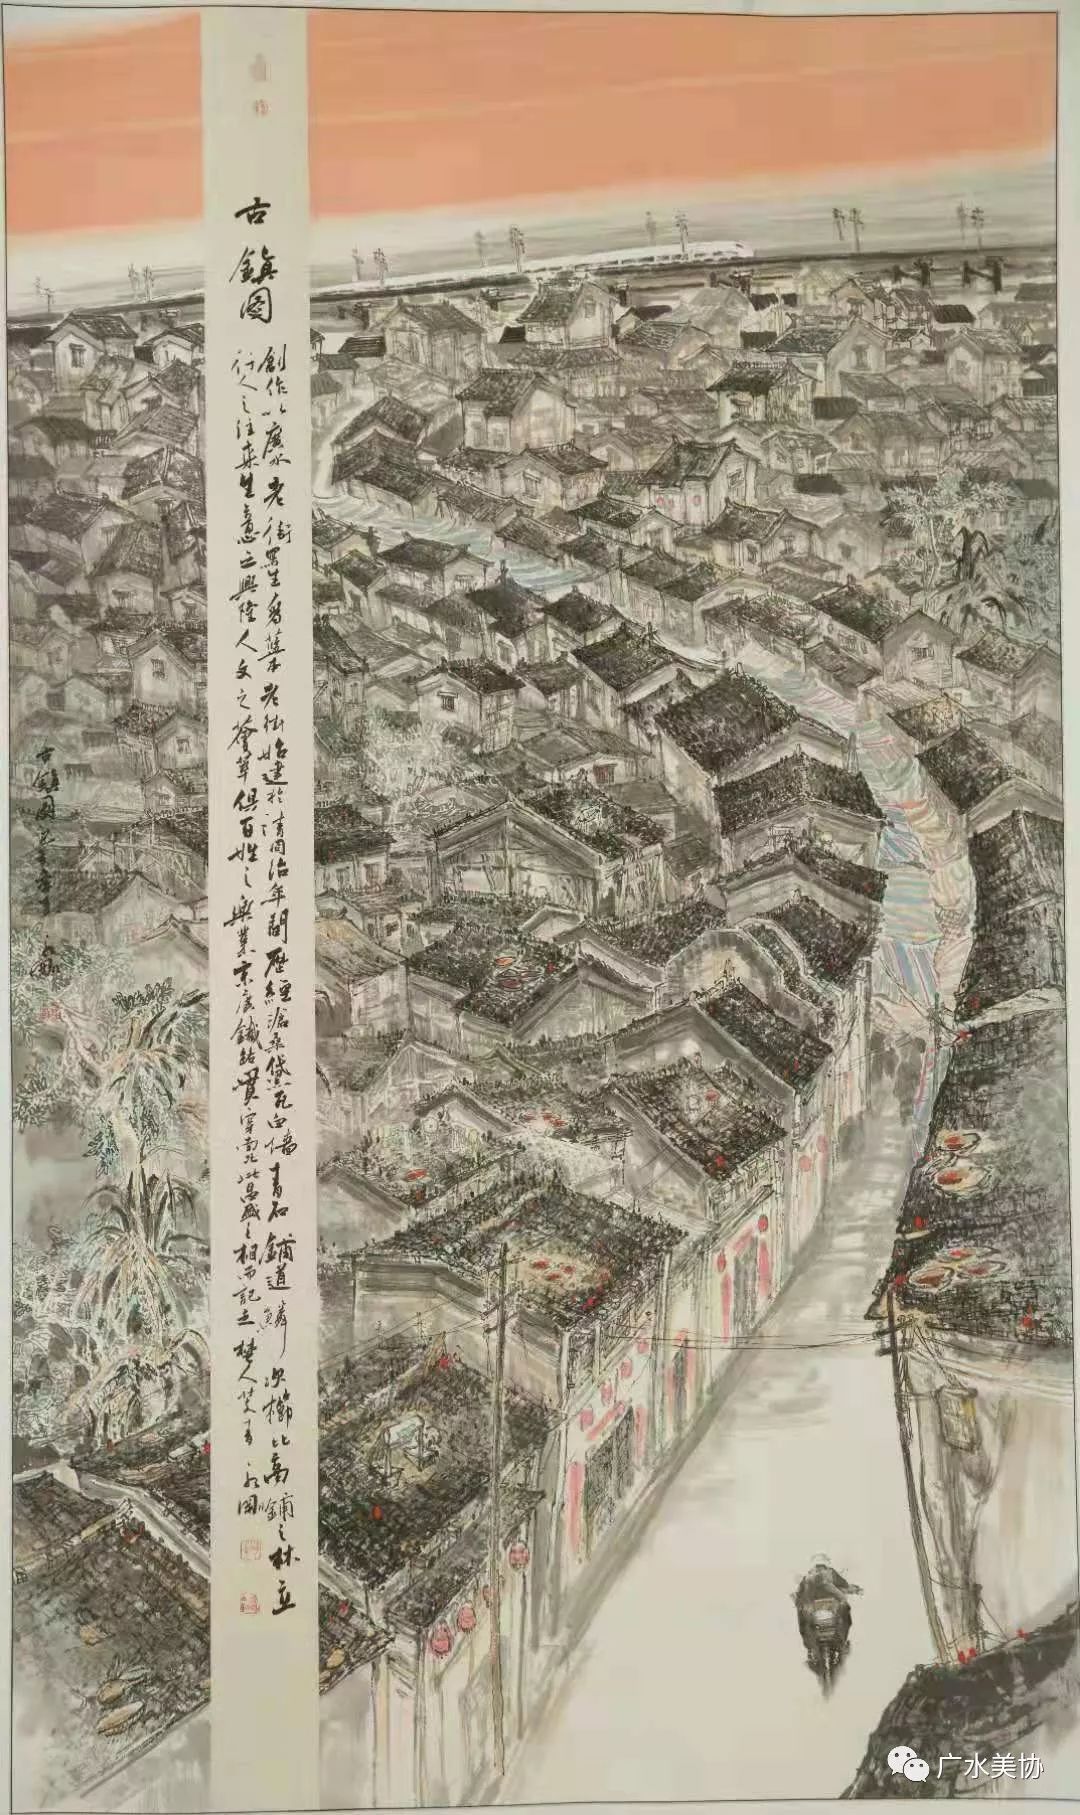 古鎮图
創作以廣水老街寫生為藍本老街始建於清同治年間歷經滄桑黛瓦白墙青石鋪道鱗次櫛比商鋪之林立
行人之往来生意之興隆人文之薈萃俱百姓之樂業京広鐵路贯穿南北此昌盛之相而記之楚人
古鎮图
广水美协